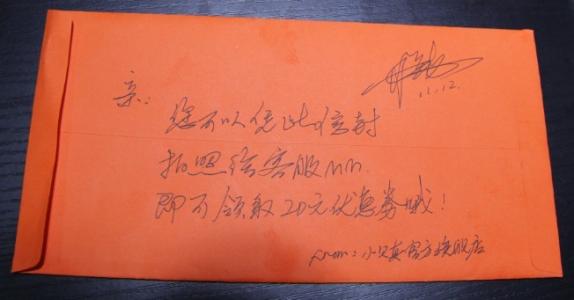 11.12.
亲:
您可以凭此信封
拍照给客服MM.
即可领取20元优惠券哦!
From:小只真官方旗舰店